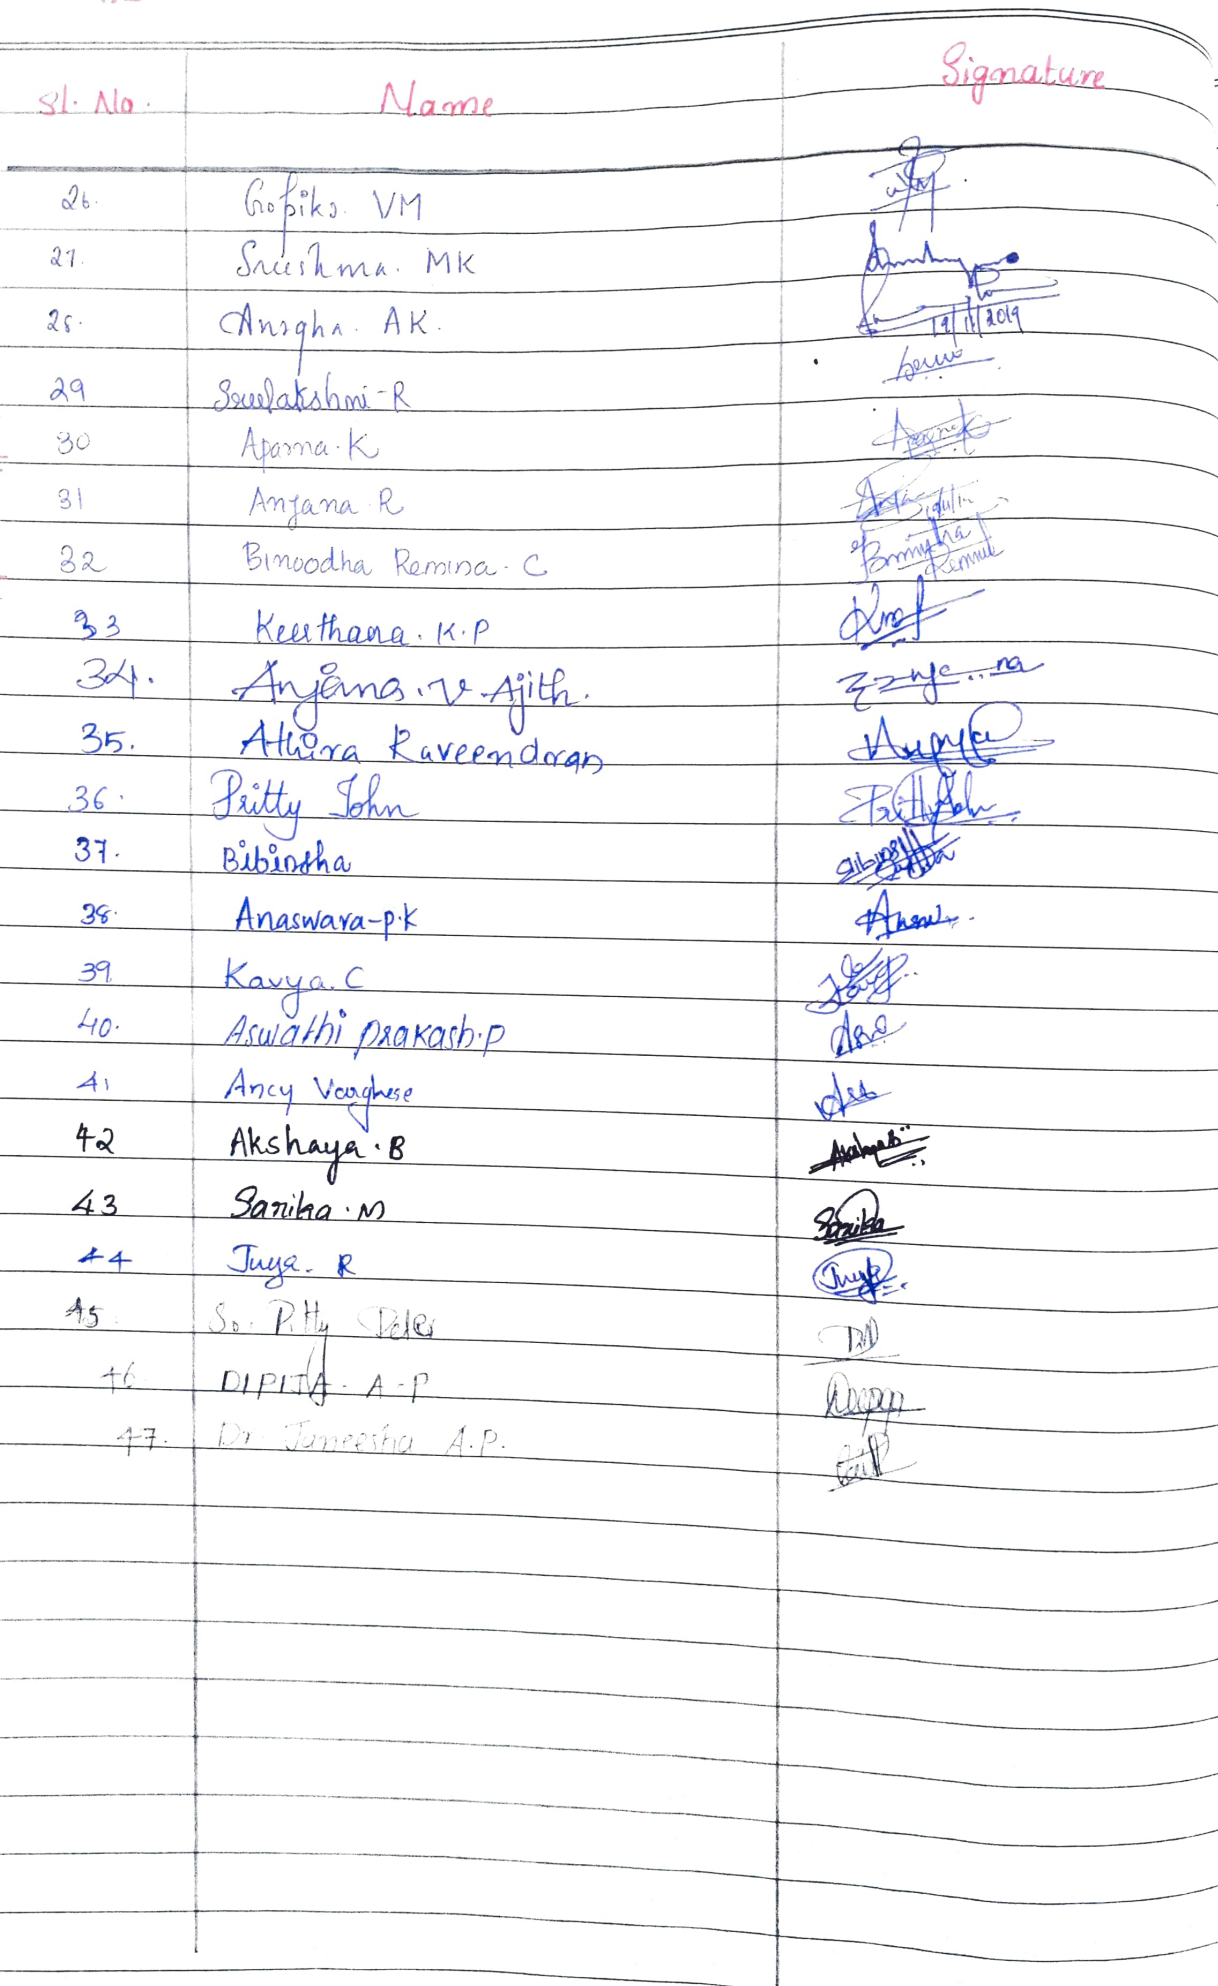 Sl. No. Name Signature
26. Gopika. VM
27. Sreeshma. MK
28. Anagha. AK.
19/11/2019
29 Sreelakshmi-R
30 Aparna.K
31 Anjana R
32 Binoodha Remina. C
33 Keerthana. K.P
34. Anjana. V. Ajith.
35. Athira Raveendran
36. Pritty John Pritty John
37. Bibinsha
38. Anaswara-p.k
39. Kavya. C
40. Aswathi prakash.p
41 Ancy Varghese
42 Akshaya. B
43 Sarika. M Sarika
44 Juya. R
45 Sr. Pitty Peter
46 DIPITA. A-P
47. Dr. Janeesha A.P.